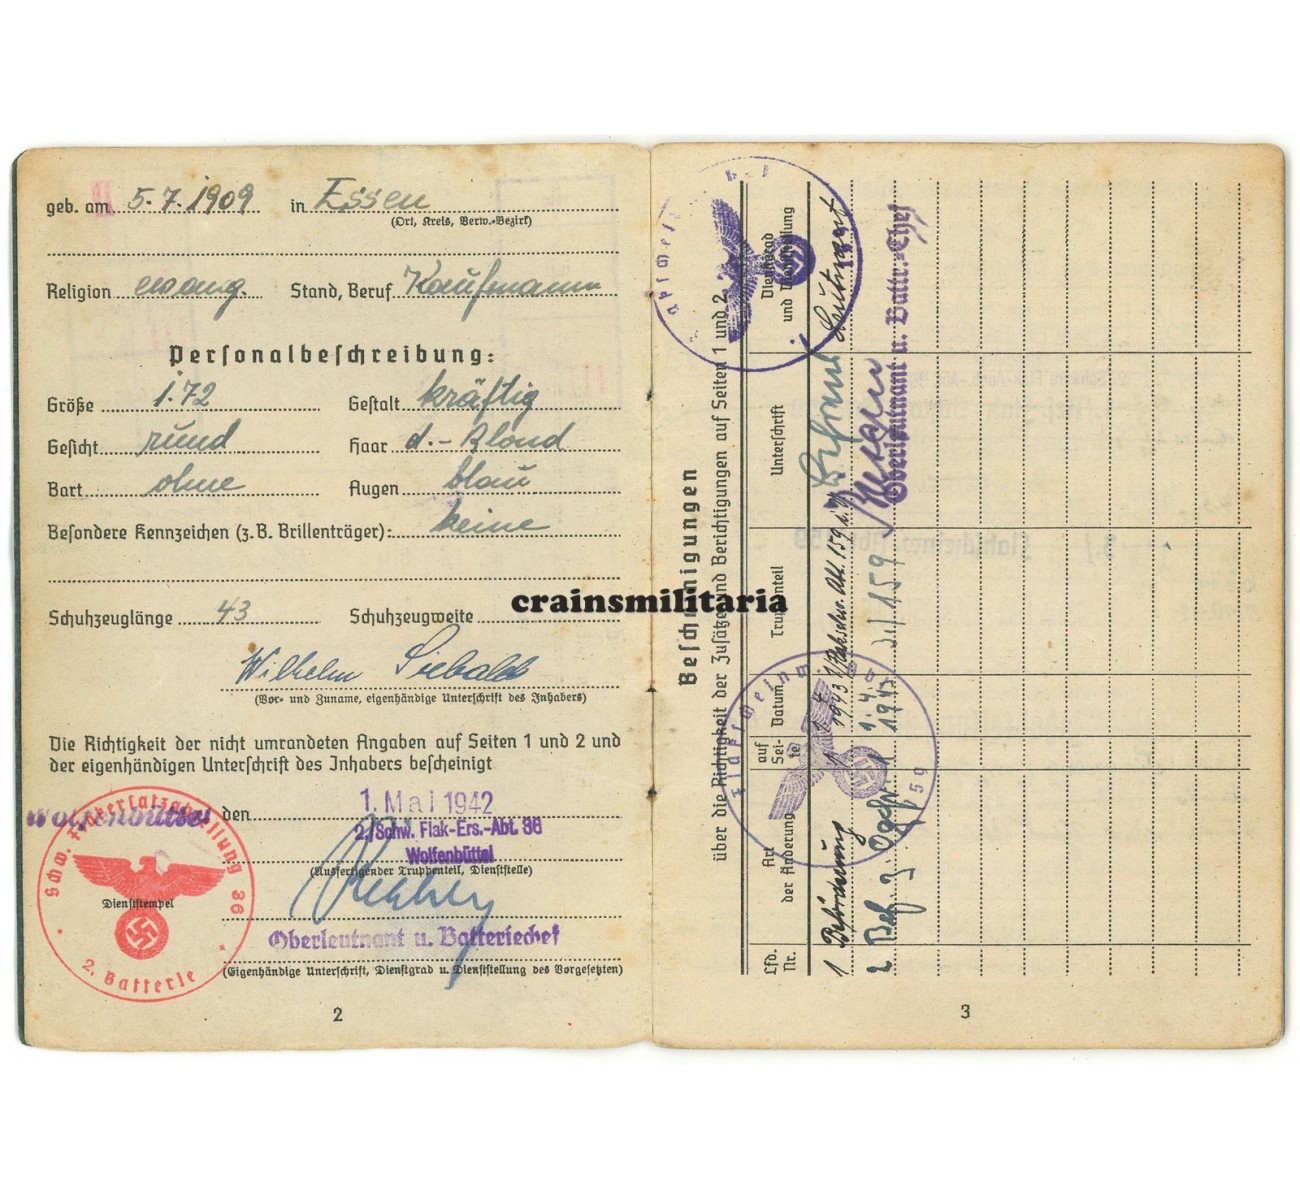 geb. am 5.7.1909 in Essen
(Ort, Kreis, Verw.-Bezirk)
Religion evang. Stand, Beruf Kaufmann
Personalbeschreibung:
Größe 1.72 Gestalt kräftig
Gesicht rund Haar d.-Blond
Bart ohne Augen blau
Besondere Kennzeichen (z.B. Brillenträger): keine
Schuhzeuglänge 43 Schuhzeugweite
Wilhelm Siebald
(Vor- und Zuname, eigenhändige Unterschrift des Inhabers)
Die Richtigkeit der nicht umrandeten Angaben auf Seiten 1 und 2 und
der eigenhändigen Unterschrift des Inhabers bescheinigt
Wolfenbüttel den 1. Mai 1942
2./Schw. Flak-Ers.-Abt. 36
Wolfenbüttel
(Ausfertigender Truppenteil, Dienststelle)
Schw. Flakersatzabteilung 36
2. Batterie
Dienststempel
Oberleutnant u. Batteriechef
(Eigenhändige Unterschrift, Dienstgrad u. Dienststellung des Vorgesetzten)
2
crainsmilitaria
Bescheinigungen
über die Richtigkeit der Zusätze und Berichtigungen auf Seiten 1 und 2
Lfd. Nr. Art der Änderung auf Seite Datum Truppenteil Unterschrift Dienstgrad und Dienststellung
1 Beförderung 1 1943 159
2 Bef. z. Ogefr. 1 1.4. 1943 159
Oberleutnant u. Battr.-Chef
3